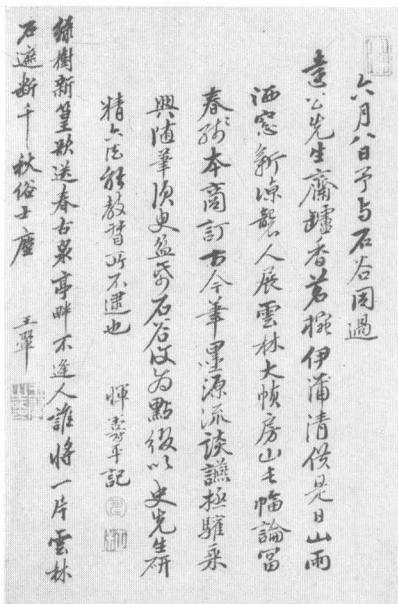 六月八日予与石谷同過
遠公先生齋罏香茗椀伊蒲清供是日山雨
洒窓新涼襲人展雲林大幀房山長幅論富
春殘本商訂古今筆墨源流談讌極驩乘
興隨筆須臾盈帋石谷復為點綴以
先生研
精六法能教習所不逮也
惲壽平記
綠樹新篁欲送春古泉亭畔不逢人誰將一片雲林
石遮斷千秋俗士塵 王翬